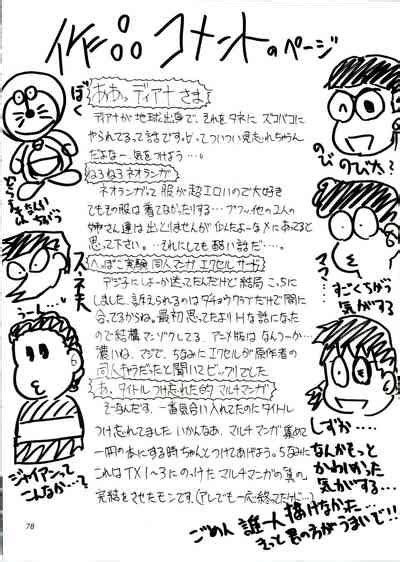 作品コメントのページ
ああっディアナさま
ディアナが地球出身で、それをタネにズコバコに
やられてるって話です。けってつい見忘れちゃうん
だよなー、気をつけよう…。
ねるねるネオランガ
ネオランガって服が超エロいので大好き
でもその服は着てなかったりする…プフッ、他の2人の
姉さん達は出てきませんが似たよーなメにあってると
思って下さい。…それにしても酷い話だ…。
へっぽこ実験同人マンガ エクセルサーガ
デジ子にしよーか迷ってたんだけど結局こっちに
しました。訴えられるのはダチョウクラブだけで間に
合ってるからね。最初思ってたよりHな話になった
ので結構マンゾクしてる。アニメ版はなんつーか…
濃いね、マジで。ちなみにエクセルが原作者の
同人キャラだったと聞いてビックリでした
あ、タイトルつけ忘れた的マルチマンガ
そーなんだす、一番気合い入れてたのにタイトル
つけ忘れてました いかんなあ。マルチマンガ集めて
一冊の本にする時ちゃんとつけてあげよう。ちなみに
これはTX1〜3にのっけたマルチマンガの真の
完結をさせたモンです。(アレでも一応終ってたけど…)
ぼく
どらえもんじゃ
ちがう
スネ夫
うーん…
ジャイアンって
こんなか…?
のび のびた?
ママ…
すごくちがう
気がする
しずか…
なんかもっと
かわいかった
気がする…
ごめん 誰一人描けなかった…
きっと君の方がうまいで!!
78